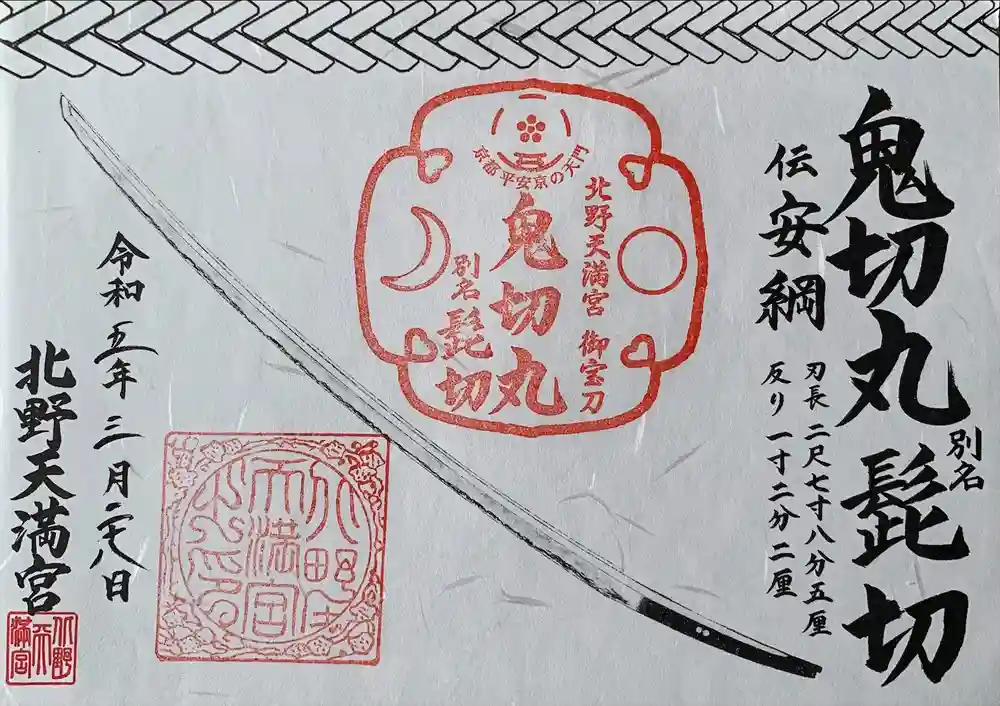 鬼切丸 別名 髭切
伝安綱
刃長 二尺七寸八分五厘
反り 一寸二分二厘
京都 平安京の天門
北野天満宮 御宝刀
鬼切丸
別名 髭切
令和五年 三月二十八日
北野天満宮
北野天満宮